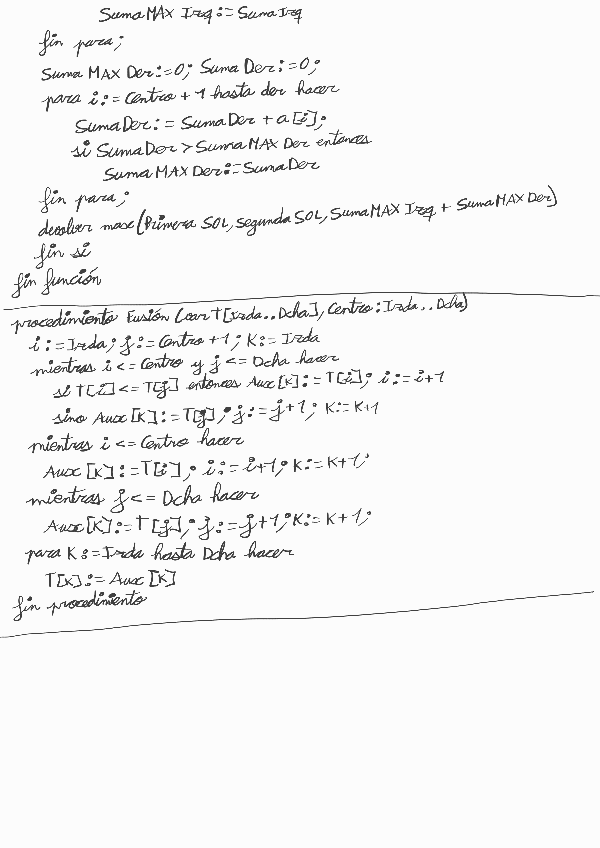 SumaMAX Izq := SumaIzq
fin para;
Suma MAX Der := 0; Suma Der := 0;
para i := Centro + 1 hasta der hacer
SumaDer := SumaDer + a[i];
si SumaDer > SumaMAX Der entonces
Suma MAX Der := SumaDer
fin para;
devolver max(Primera SOL, segunda SOL, SumaMAX Izq + SumaMAX Der)
fin si
fin función
procedimiento Fusión (var T[Izda..Dcha], Centro: Izda..Dcha)
i := Izda; j := Centro + 1; K := Izda
mientras i <= Centro y j <= Dcha hacer
si T[i] <= T[j] entonces Aux[K] := T[i]; i := i+1
sino Aux[K] := T[j]; j := j+1; K := K+1
mientras i <= Centro hacer
Aux[K] := T[i]; i := i+1; K := K+1;
mientras j <= Dcha hacer
Aux[K] := T[j]; j := j+1; K := K+1;
para K := Izda hasta Dcha hacer
T[K] := Aux[K]
fin procedimiento